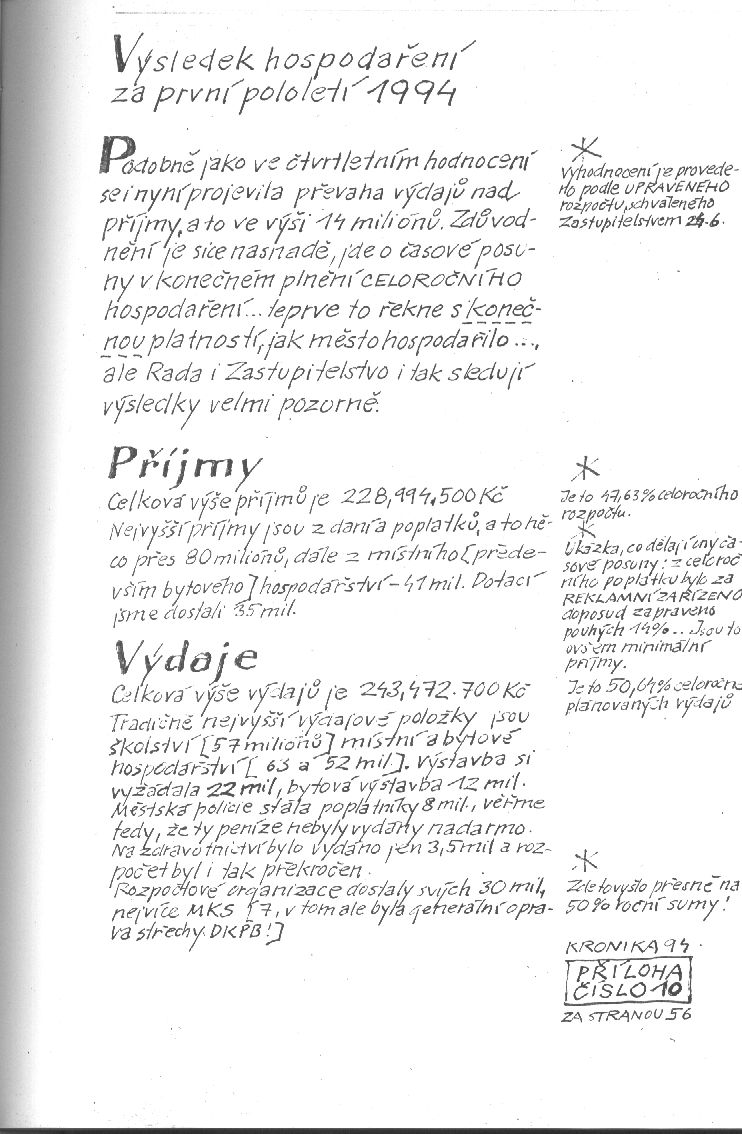 Výsledek hospodaření
za první pololetí 1994
Podobně jako ve čtvrtletním hodnocení
se i nyní projevila převaha výdajů nad
příjmy, a to ve výši 14 miliónů. Zdůvod-
nění je sice nasnadě, jde o časové posu-
ny v konečném plnění CELOROČNÍHO
hospodaření... teprve to řekne s koneč-
nou platností, jak město hospodařilo...,
ale Rada i Zastupitelstvo i tak sledují
výsledky velmi pozorně.
Vyhodnocení je provede-
no podle UPRAVENÉHO
rozpočtu, schváleného
Zastupitelstvem 6.
Příjmy
Celková výše příjmů je 228,994,500 Kč
Nejvyšší příjmy jsou z daní a poplatků, a to ně-
co přes 80 miliónů, dále z místního [přede-
vším bytového] hospodářství - 41 mil. Dotací
jsme dostali 35 mil.
Je to 47,63% celoročního
rozpočtu.
Ukázka, co dělají ony ča-
sové posuny: z celoroč
ního poplatku bylo za
REKLAMNÍ ZAŘÍZENO
doposud zapraveno
pouhých 14%... Jsou to
ovšem minimální
příjmy.
Výdaje
Celková výše výdajů je 243,472.700 Kč
Tradičně nejvyšší výdajové položky jsou
školství [57 miliónů] místní a bytové
hospodářství [63 a 52 mil]. Výstavba si
vyžádala 22 mil, bytová výstavba 12 mil.
Městská policie stála poplatníky 8 mil., věřme
tedy, že ty peníze nebyly vydány nadarmo.
Na zdravotnictví bylo vydáno jen 3,5 mil a roz-
počet byl i tak překročen.
Rozpočtové organizace dostaly svých 30 mil,
nejvíce MKS [7, v tom ale byla generální opra-
va střechy DKPB!]
Je to 50,04% celoročně
plánovaných výdajů
Zde to vyšlo přesně na
50% roční sumy!
KRONIKA 94.
PŘÍLOHA
ČÍSLO 10
ZA STRANOU 56